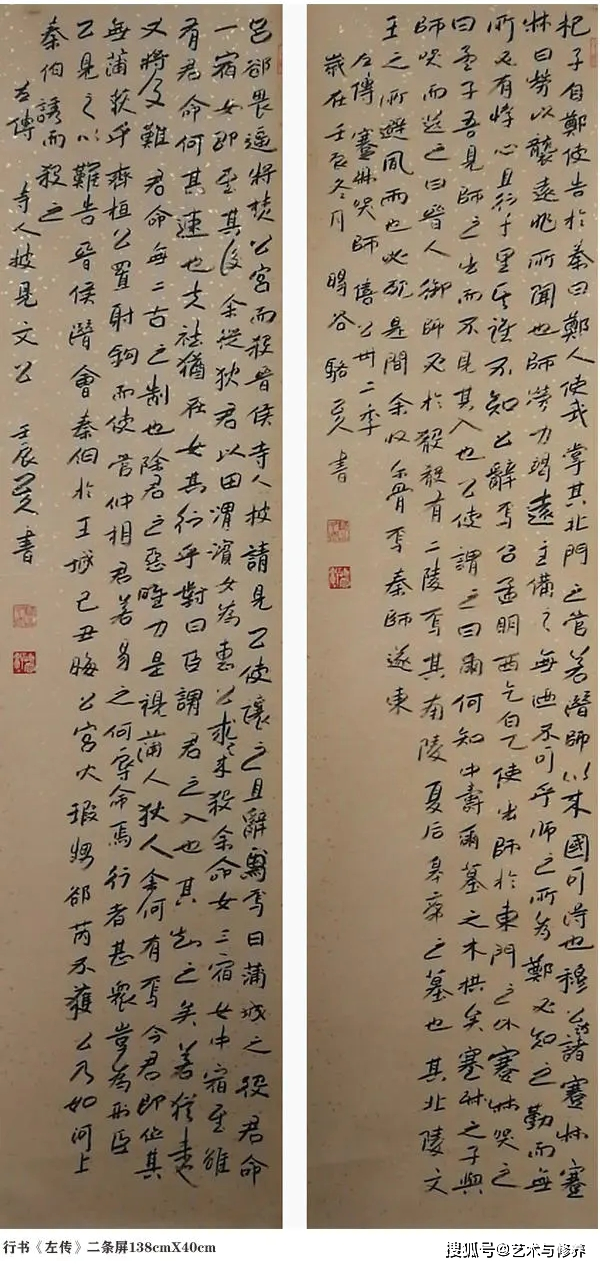 杞子自鄭使告於秦曰鄭人使我掌其北門之管若潛師以來國可得也穆公諸蹇叔蹇
叔曰勞以襲遠非所聞也師勞力竭遠主備之無迺不可乎師之所為鄭必知之勤而無
所必有悖心且行千里其誰不知公辭焉召孟明西乞白乙使出師於東門之外蹇叔哭之
曰孟子吾見師之出而不見其入也公使謂之曰爾何知中壽爾墓之木拱矣蹇叔之子與
師哭而送之曰晉人御師必於殽殽有二陵焉其南陵夏后皋之墓也其北陵文
王之所避風雨也必死是間余收爾骨焉秦師遂東
左傳 蹇叔哭師 僖公卅二年
歲在壬辰冬月 暘谷駱書
呂郤畏逼將焚公宮而殺晉侯寺人披請見公使讓之且辭焉曰蒲城之役君命
一宿女即至其後余從狄君以田渭濱女為惠公求來殺余命女三宿女中宿至雖
有君命何其速也夫袪猶在女其行乎對曰臣謂君之入也其知之矣若猶未
又將及難君命無二古之制也除君之惡唯力是視蒲人狄人余何有焉今君即位其
無蒲狄乎齊桓公置射鉤而使管仲相君若易之何辱命焉行者甚衆豈為刑臣
公見之以難告晉侯潛會秦伯於王城己丑晦公宮火瑕甥郤芮不獲公乃如河上
秦伯誘而殺之
左傳 寺人披見文公 壬辰書
行书《左传》二条屏138cmX40cm
搜狐号@艺术与修养